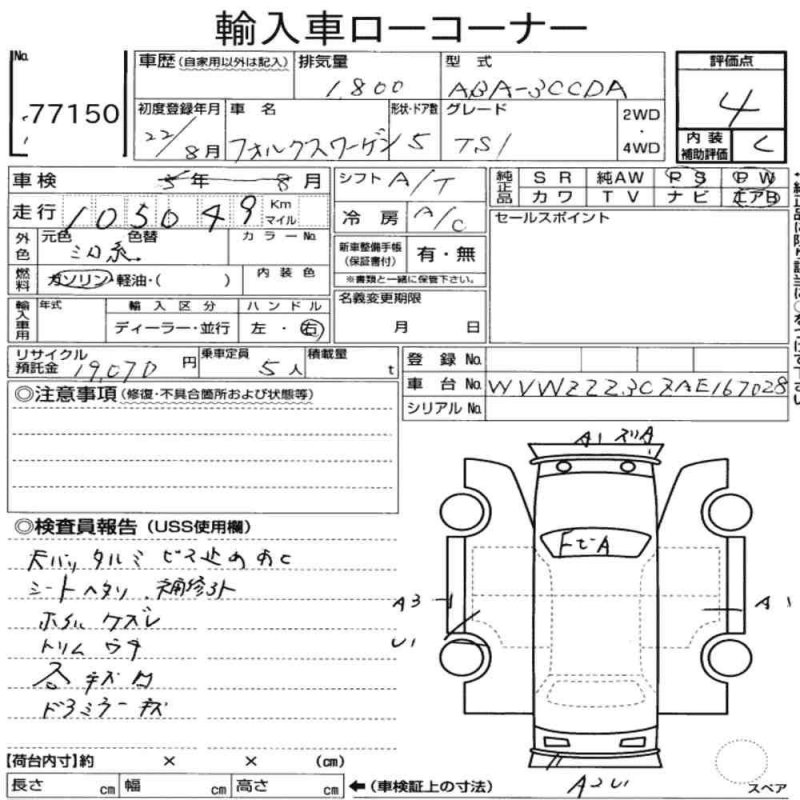 輸入車ローコーナー
No.
77150
車歴(自家用以外は記入)
排気量
型式
評価点
1,800
ABA-3CCDA
4
初度登録年月
車名
形状・ドア数
グレード
2WD
・
4WD
22/8月
フォルクスワーゲン
5
TSI
内装
補助評価
C
車検
5年 8月
シフト A/T
純正品
SR 純AW PS PW
カワ TV ナビ エアB
走行 105049 Km マイル
冷房 A/C
セールスポイント
外色
元色 色替
カラーNo.
新車整備手帳
(保証書付)
有・無
※書類と一緒に保管下さい。
燃料
ガソリン・軽油・( )
内装色
名義変更期限
月 日
輸入車用
年式
輸入区分
ハンドル
ディーラー・並行
左・右
リサイクル
預託金
19,070円
乗車定員 5人
積載量 t
登録No.
車台No. WVWZZZ3CZAE167028
シリアルNo.
◎注意事項(修復・不具合箇所および状態等)
◎検査員報告(USS使用欄)
天バリ タルミ ビス止めあと
シートヘタリ
ホイルケズレ
トリム
ドアミラーキズ
A1
FセA
A3
A1
U1
A2 U1
スペア
【荷台内寸】約 × × (cm)
長さ cm 幅 cm 高さ cm ←(車検証上の寸法)